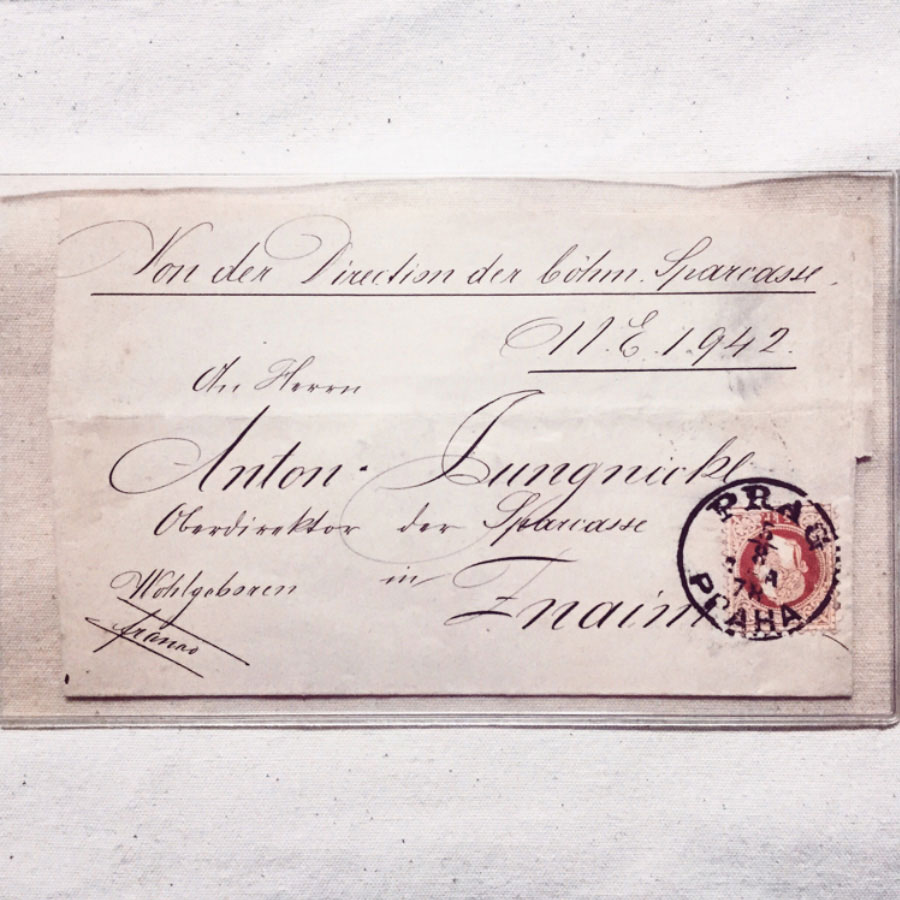 Von der Direction der böhm. Sparcasse.
N. E. 1942.
An Herrn
Anton Jungnickl
Oberdirektor der Sparcasse
Wohlgeboren in Znaim
franco
PRAG
PRAHA